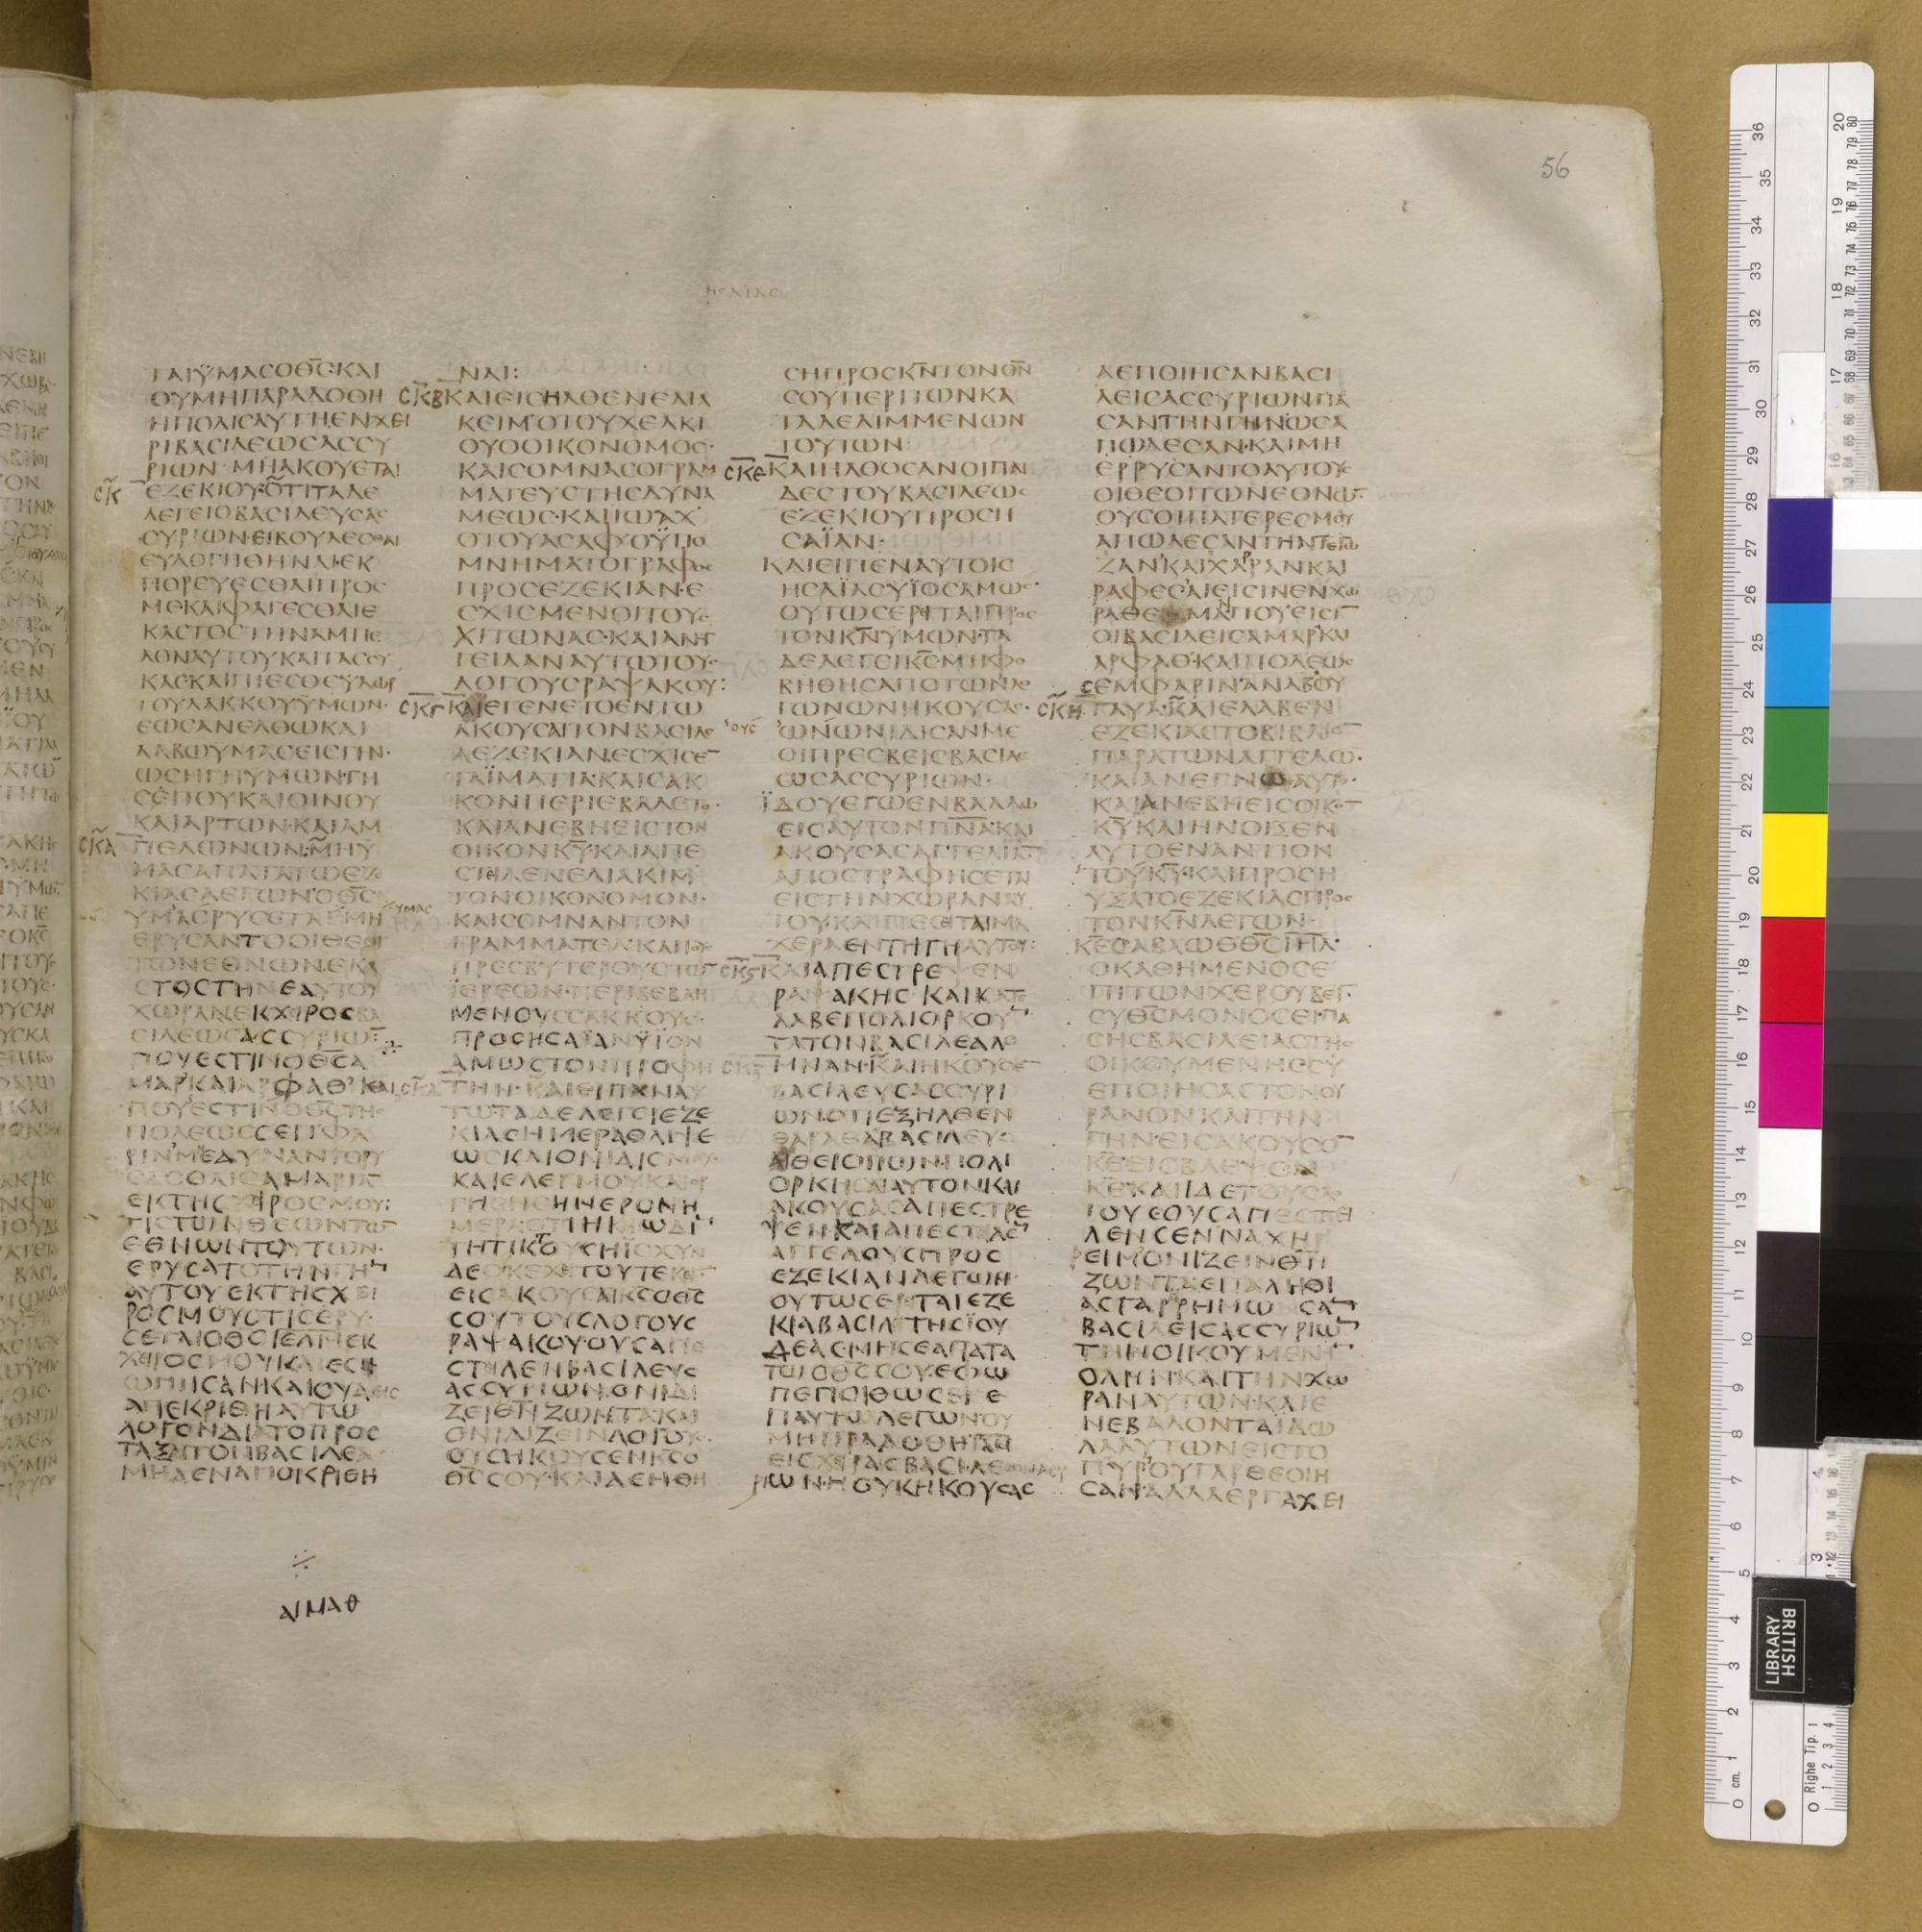 56
ΗΣΑΙΑΣ
ΤΑΙΫΜΑϹΟΘϹ·ΚΑΙ
ΟΥΜΗΠΑΡΑΔΟΘΗ
ΗΠΟΛΙϹΑΥΤΗΕΝΧΕΙ
ΡΙΒΑϹΙΛΕΩϹΑϹϹΥ
ΡΙΩΝ·ΜΗΑΚΟΥΕΤΑΙ
ΕΖΕΚΙΟΥ·ΟΤΙΤΑΔΕ
ΛΕΓΕΙΟΒΑϹΙΛΕΥϹΑϹ
ϹΥΡΙΩΝ·ΕΙΒΟΥΛΕϹΘΑΙ
ΕΥΛΟΓΗΘΗΝΑΙ·ΕΚ
ΠΟΡΕΥΕϹΘΑΙΠΡΟϹ
ΜΕΚΑΙΦΑΓΕϹΘΑΙΕ
ΚΑϹΤΟϹΤΗΝΑΜΠΕ
ΛΟΝΑΥΤΟΥΚΑΙΤΑϹϹΥ
ΚΑϹΚΑΙΠΙΕϹΘΕΫΔΩΡ
ΤΟΥΛΑΚΚΟΥΫΜΩΝ·
ΕΩϹΑΝΕΛΘΩΚΑΙ
ΛΑΒΩΥΜΑϹΕΙϹΓΗΝ·
ΩϹΗΓΗΥΜΩΝ·ΓΗ
ϹΕΙΤΟΥΚΑΙΟΙΝΟΥ
ΚΑΙΑΡΤΩΝ·ΚΑΙΑΜ
ΠΕΛΩΝΩΝ:ΜΗΫ
ΜΑϹΑΠΑΤΑΤΩΕΖΕ
ΚΙΑϹΛΕΓΩΝ·ΟΘϹ
ΥΜΑϹΡΥϹΕΤΑΙ·ΜΗ
ΕΡΥϹΑΝΤΟΟΙΘΕΟΙ
ΤΩΝΕΘΝΩΝ·ΕΚΑ
ϹΤΟϹΤΗΝΕΑΥΤΟΥ
ΧΩΡΑΝΕΚΧΙΡΟϹΒΑ
ϹΙΛΕΩϹΑϹϹΥΡΙΩΝ·
ΠΟΥΕϹΤΙΝΟΘϹΑ
ΜΑΡΚΑΙΑΡΦΑΘ·ΚΑΙ
ΠΟΥΕϹΤΙΝΟΘϹΤΗϹ
ΠΟΛΕΩϹϹΕΠΦΑ
ΡΙΝ·ΜΕΔΥΝΑΝΤΟΡΥ
ϹΑϹΘΑΙϹΑΜΑΡΙΑΝ
ΕΚΤΗϹΧΙΡΟϹΜΟΥ:
ΤΙϹΤΩΝΘΕΩΝΤΩΝ
ΕΘΝΩΝΤΟΥΤΩΝ·
ΕΡΥϹΑΤΟΤΗΝΓΗΝ
ΑΥΤΟΥΕΚΤΗϹΧΕΙ
ΡΟϹΜΟΥΟΤΙϹΕΡΥ·
ϹΕΤΑΙΟΘϹΙΕΛΗΜΕΚ
ΧΙΡΟϹΜΟΥΚΑΙΕϹΙ
ΩΠΗϹΑΝ·ΚΑΙΟΥΔΕΙϹ
ΑΠΕΚΡΙΘΗΑΥΤΩ
ΛΟΓΟΝΔΙΑΤΟΠΡΟϹ
ΤΑΞΑΙΤΟΝΒΑϹΙΛΕΑ·
ΜΗΔΕΝΑΠΟΚΡΙΘΗ
ΝΑΙ:
ϹΚΒ ΚΑΙΕΙϹΗΛΘΕΝΕΛΙΑ
ΚΕΙΜ·ΟΤΟΥΧΕΛΚΙ
ΟΥΟΟΙΚΟΝΟΜΟϹ·
ΚΑΙϹΟΜΝΑϹΟΓΡΑΜ
ΜΑΤΕΥϹΤΗϹΔΥΝΑ
ΜΕΩϹ·ΚΑΙΙΩΑΧ
ΟΤΟΥΑϹΑΦΟΥΟΫΠΟ
ΜΝΗΜΑΤΟΓΡΑΦΟϹ
ΠΡΟϹΕΖΕΚΙΑΝ·Ε
ϹΧΙϹΜΕΝΟΙΤΟΥϹ
ΧΙΤΩΝΑϹ·ΚΑΙΑΝΗΓ
ΓΕΙΛΑΝΑΥΤΩΤΟΥϹ
ΛΟΓΟΥϹΡΑΨΑΚΟΥ:
ϹΚΓ ΚΑΙΕΓΕΝΕΤΟΕΝΤΩ
ΑΚΟΥϹΑΙΤΟΝΒΑϹΙΛΕ
ΑΕΖΕΚΙΑΝ·ΕϹΧΙϹΕΝ
ΤΑΪΜΑΤΙΑ·ΚΑΙϹΑΚ
ΚΟΝΠΕΡΙΕΒΑΛΕΤΟ·
ΚΑΙΑΝΕΒΗΕΙϹΤΟΝ
ΟΙΚΟΝΚΥ·ΚΑΙΑΠΕ
ϹΤΙΛΕΝΕΛΙΑΚΙΜ
ΤΟΝΟΙΚΟΝΟΜΟΝ·
ΚΑΙϹΟΜΝΑΝΤΟΝ
ΓΡΑΜΜΑΤΕΑ·ΚΑΙΤΟΥϹ
ΠΡΕϹΒΥΤΕΡΟΥϹΤΩΝ
ΪΕΡΕΩΝ·ΠΕΡΙΒΕΒΛΗ
ΜΕΝΟΥϹϹΑΚΚΟΥϹ·
ΠΡΟϹΗϹΑΪΑΝΫΙΟΝ
ΑΜΩϹΤΟΝΠΡΟΦΗ
ΤΗΝ·ΚΑΙΕΙΠΑΝΑΥ
ΤΩΤΑΔΕΛΕΓΕΙΕΖΕ
ΚΙΑϹΗΜΕΡΑΘΛΙΨΕ
ΩϹΚΑΙΟΝΙΔΙϹΜΟΥ·
ΚΑΙΕΛΕΓΜΟΥΚΑΙΟΡ
ΓΗϹΗϹΗΜΕΡΟΝΗ
ΜΕΡΑΟΤΙΗΚΙΩΔΙ
ΤΗΤΙΚΤΟΥϹΗΪϹΧΥΝ
ΔΕΟΥΚΕΧΙΤΟΥΤΕΚΕΙΝ
ΕΙϹΑΚΟΥϹΑΙΚϹΟΘϹ
ϹΟΥΤΟΥϹΛΟΓΟΥϹ
ΡΑΨΑΚΟΥ·ΟΥϹΑΠΕ
ϹΤΙΛΕΝΒΑϹΙΛΕΥϹ
ΑϹϹΥΡΙΩΝ·ΟΝΙΔΙ
ΖΕΙΘΝΖΩΝΤΑΚΑΙ
ΟΝΙΔΙΖΕΙΝΛΟΓΟΥϹ·
ΟΥϹΗΚΟΥϹΕΝΚϹΟ
ΘϹϹΟΥ·ΚΑΙΔΕΗΘΗ
ϹΗΠΡΟϹΚΝΤΟΝΘΝ
ϹΟΥΠΕΡΙΤΩΝΚΑ
ΤΑΛΕΛΙΜΜΕΝΩΝ
ΤΟΥΤΩΝ·
ϹΚΕ ΚΑΙΗΛΘΟϹΑΝΟΙΠΑΙ
ΔΕϹΤΟΥΒΑϹΙΛΕΩϹ
ΕΖΕΚΙΟΥΠΡΟϹΗ
ϹΑΪΑΝ·
ΚΑΙΕΙΠΕΝΑΥΤΟΙϹ
ΗϹΑΪΑϹΥΪΟϹΑΜΩϹ·
ΟΥΤΩϹΕΡΙΤΑΙΠΡΟϹ
ΤΟΝΚΝΥΜΩΝ·ΤΑ
ΔΕΛΕΓΕΙΚϹ·ΜΗΦΟ
ΒΗΘΗϹΑΠΟΤΩΝΛΟ
ΓΩΝΩΝΗΚΟΥϹΑϹ·
ΩΝΩΝΙΔΙϹΑΝΜΕ
ΟΙΠΡΕϹΒΕΙϹΒΑϹΙΛΕ
ΩϹΑϹϹΥΡΙΩΝ·
ΪΔΟΥΕΓΩΕΝΒΑΛΛΩ
ΕΙϹΑΥΤΟΝΠΝΑ·ΚΑΙ
ΑΚΟΥϹΑϹΑΓΓΕΛΙΑΝ
ΑΠΟϹΤΡΑΦΗϹΕΤΑΙ
ΕΙϹΤΗΝΧΩΡΑΝΑΥ
ΤΟΥ·ΚΑΙΠΕϹΙΤΑΙΜΑ
ΧΕΡΑΕΝΤΗΓΗΑΥΤΟΥ:
ΚΑΙΑΠΕϹΤΡΕΨΕΝ
ΡΑΨΑΚΗϹ·ΚΑΙΚΑΤΕ
ΛΑΒΕΠΟΛΙΟΡΚΟΥΝ
ΤΑΤΟΝΒΑϹΙΛΕΑΛΟ
ΜΝΑΝ·ΚΑΙΗΚΟΥϹΕΝ
ΒΑϹΙΛΕΥϹΑϹϹΥΡΙ
ΩΝΟΤΙΕΞΗΛΘΕΝ
ΘΑΡΑΘΑΒΑϹΙΛΕΥϹ
ΑΙΘΕΙΟΠΩΝ·ΠΟΛΙ
ΟΡΚΗϹΑΙΑΥΤΟΝΚΑΙ
ΑΚΟΥϹΑϹΑΠΕϹΤΡΕ
ΨΕΝΚΑΙΑΠΕϹΤΙΛΕΝ
ΑΓΓΕΛΟΥϹΠΡΟϹ
ΕΖΕΚΙΑΝΛΕΓΩΝ·
ΟΥΤΩϹΕΡΙΤΑΙΕΖΕ
ΚΙΑΒΑϹΙΛΙΤΗϹΪΟΥ
ΔΕΑϹΜΗϹΕΑΠΑΤΑ
ΤΩΟΘϹϹΟΥ·ΕΦΩ
ΠΕΠΟΙΘΩϹΕΙΕ
ΠΑΥΤΩΛΕΓΩΝΟΥ
ΜΗΠΑΡΑΔΟΘΗΙΛΗΜ
ΕΙϹΧΙΡΑϹΒΑϹΙΛΕΩϹΑϹϹΥ
ΡΙΩΝ·ΗΟΥΚΗΚΟΥϹΑϹ
ΑΕΠΟΙΗϹΑΝΒΑϹΙ
ΛΕΙϹΑϹϹΥΡΙΩΝΠΑ
ϹΑΝΤΗΝΓΗΝΩϹΑ
ΠΩΛΕϹΑΝ·ΚΑΙΜΗ
ΕΡΡΥϹΑΝΤΟΑΥΤΟΥϹ
ΟΙΘΕΟΙΤΩΝΕΘΝΩΝ·
ΟΥϹΟΙΠΑΤΕΡΕϹΜΟΥ
ΑΠΩΛΕϹΑΝΤΗΝΤΕΓΩ
ΖΑΝ·ΚΑΙΧΑΡΡΑΝΚΑΙ
ΡΑΦΕϹ·ΑΙΕΙϹΙΝΕΝΧΩ
ΡΑΘΕΜΑ·ΠΟΥΕΙϹΙΝ
ΟΙΒΑϹΙΛΕΙϹΑΜΑΡΚΑΙ
ΑΡΦΑΘ·ΚΑΙΠΟΛΕΩϹ
ϹΕΜΦΑΡΙΝ·ΑΝΑΒΟΥ
ϹΚΗ ΓΑΥΑ·ΚΑΙΕΛΑΒΕΝ
ΕΖΕΚΙΑϹΤΟΒΙΒΛΙΟΝ
ΠΑΡΑΤΩΝΑΓΓΕΛΩΝ·
ΚΑΙΑΝΕΓΝΩΑΥΤΟ·
ΚΑΙΑΝΕΒΗΕΙϹΟΙΚΟΝ
ΚΥΚΑΙΗΝΟΙΞΕΝ
ΑΥΤΟΕΝΑΝΤΙΟΝ
ΤΟΥΚΥ·ΚΑΙΠΡΟϹΗ
ΥΞΑΤΟΕΖΕΚΙΑϹΠΡΟϹ
ΤΟΝΚΝΛΕΓΩΝ·
ΚΕϹΑΒΑΩΘΘϹΙΗΛ·
ΟΚΑΘΗΜΕΝΟϹΕ
ΠΙΤΩΝΧΕΡΟΥΒΕΙΝ·
ϹΥΘϹΜΟΝΟϹΕΙΠΑ
ϹΗϹΒΑϹΙΛΕΙΑϹΤΗϹ
ΟΙΚΟΥΜΕΝΗϹ·ϹΥ
ΕΠΟΙΗϹΑϹΤΟΝΟΥ
ΡΑΝΟΝΚΑΙΤΗΝ
ΓΗΝ·ΕΙϹΑΚΟΥϹΟΝ
ΚΕΕΙϹΒΛΕΨΟΝ
ΚΕΚΑΙΙΔΕΤΟΥϹΛΟ
ΓΟΥϹΟΥϹΑΠΕϹΤΕΙ
ΛΕΝϹΕΝΝΑΧΗ
ΡΕΙΜΟΝΙΖΕΙΝΘΝ
ΖΩΝΤΑΕΠΑΛΗΘΙ
ΑϹΓΑΡΡΗΜΩϹΑΝ
ΒΑϹΙΛΕΙϹΑϹϹΥΡΙΩΝ
ΤΗΝΟΙΚΟΥΜΕΝΗΝ
ΟΛΗΝ·ΚΑΙΤΗΝΧΩ
ΡΑΝΑΥΤΩΝ·ΚΑΙΕ
ΝΕΒΑΛΟΝΤΑΪΔΩ
ΛΑΑΥΤΩΝΕΙϹΤΟ
ΠΥΡ·ΟΥΓΑΡΘΕΟΙΗ
ϹΑΝ·ΑΛΛΑΕΡΓΑΧΕΙ
ΑΙΜΑΘ
BRITISH
LIBRARY